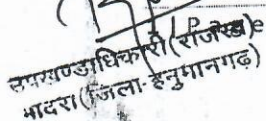 | P a g e
उपखण्डाधिकारी (राजस्व)
भादरा (जिला-हनुमानगढ़)